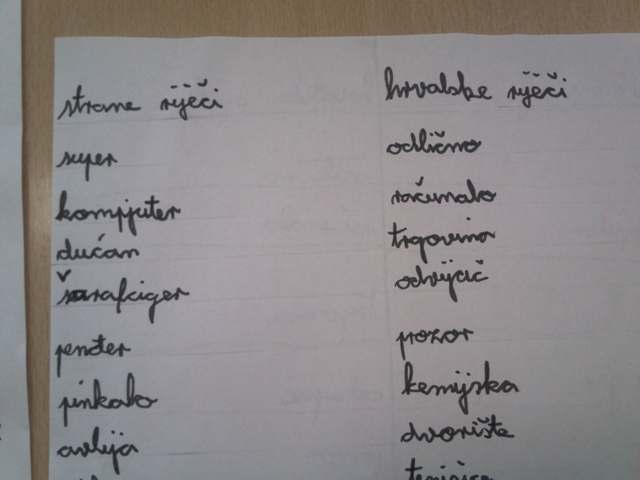 strane riječi
super
kompjuter
dućan
šarafciger
penđer
pinkalo
avlija
hrvatske riječi
odlično
računalo
trgovina
odvijač
prozor
kemijska
dvorište
tenisice